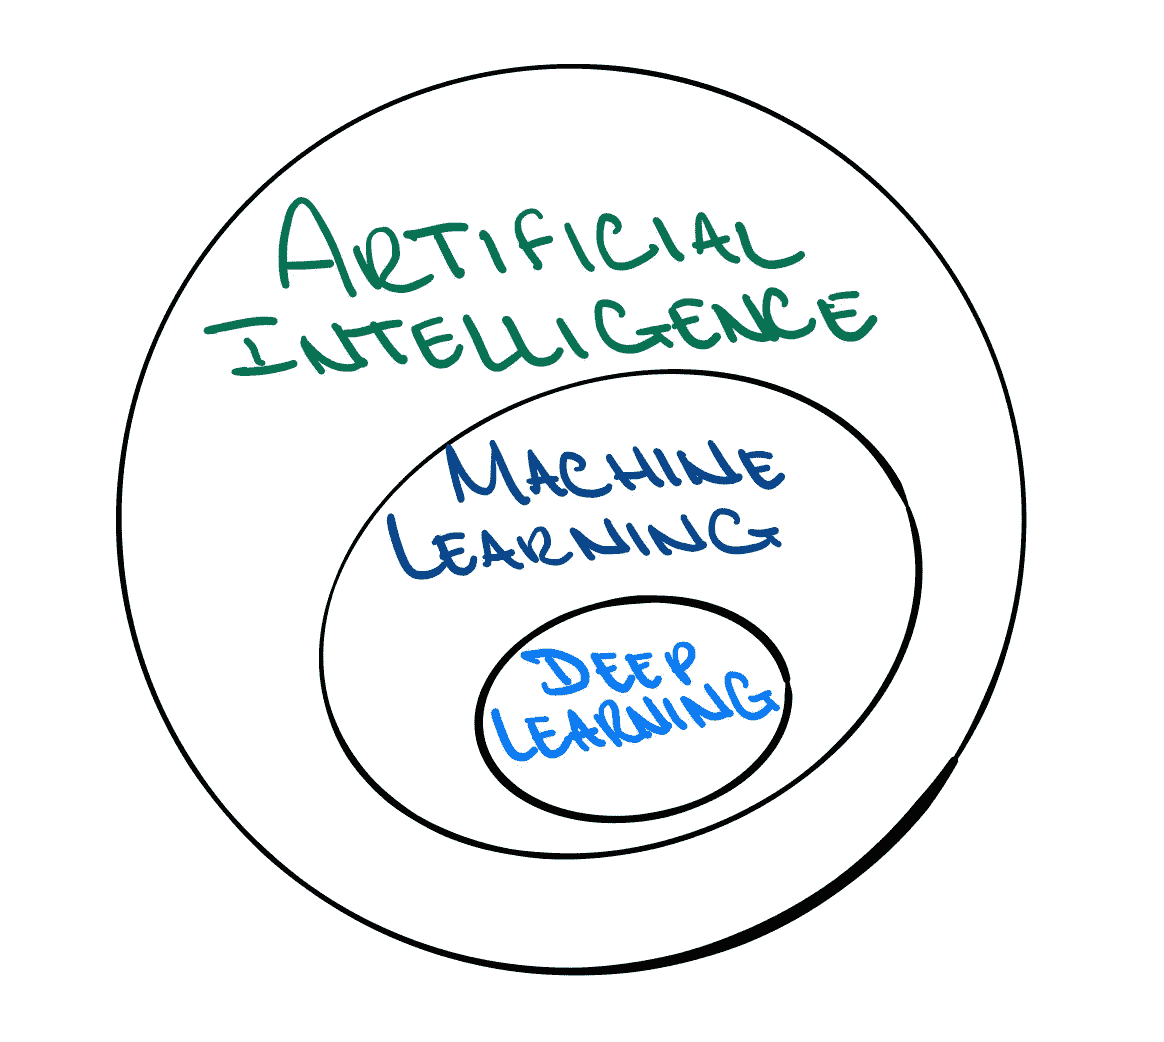 ARTIFICIAL
INTELLIGENCE
MACHINE
LEARNING
DEEP
LEARNING